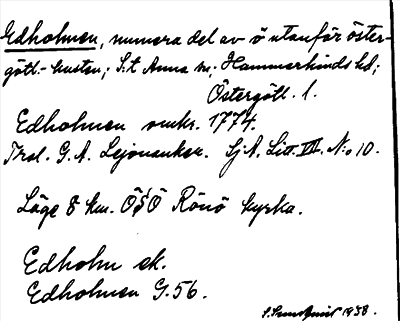 Edholmen, numera del av ö utanför öster-
götl.-kusten; S:t Anna sn; Hammarkinds hd;
Östergötl. l.
Edholmen omkr. 1774.
Trol. G. A. Lejonanker. Sj.A. Litt. VIII. N:o 10.
Läge 8 km. ÖSÖ Rönö kyrka.
Edholm ek.
Edholmen G. 56.
1938.